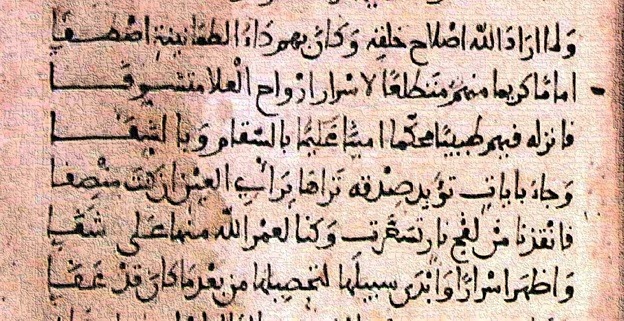 ولما اراد الله اصلاح خلقه وكان بهم داء اصطفا
اماما كريما منهم متطلعا لاسرار ارواح العلا متشوفا
فانزله فيهم طبيبا محكما امينا عليما بالسقام وبالشفا
وجاء بايات تؤيد صدقه تراها براي العين ان كنت منصفا
فانقذنا من لفح نار تسعرت وكنا لعمر الله منها على شفا
واظهر اسرارا وابدى سبيلها لتحصيلها من بعد ما كان قد عفا